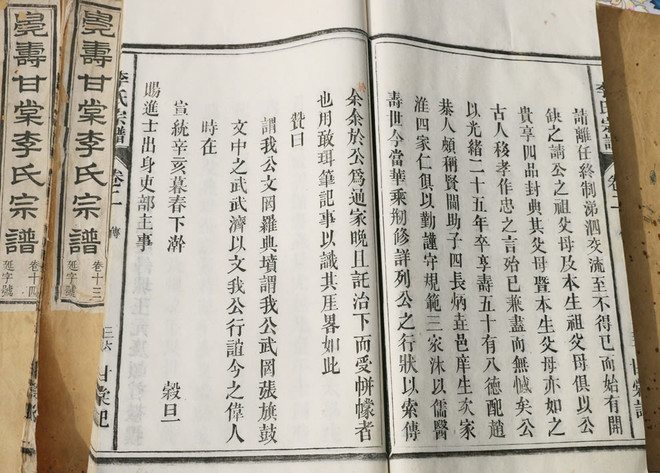 李氏宗譜 卷二
請離任終制涕泗交流至不得已而始有開
缺之請公之祖父母及本生祖父母俱以公
貴享四品封典其父母暨本生父母亦如之
古人移孝作忠之言殆已兼盡而無憾矣公
以光緒二十五年卒享壽五十有八德配趙
恭人頗稱賢閫助子四長炳垚邑庠生次家
淮四家仁俱以勤謹守規範三家沐以儒醫
壽世今當華乘刱修詳列公之行狀以索傳
余余於公爲通家晚且託治下而受帡幪者
也用敢珥筆記事以識其厓畧如此
贊曰
謂我公文罔羅典墳謂我公武罔張旗鼓
文中之武武濟以文我公行誼今之偉人
時在
宣統辛亥暮春下澣 穀旦
賜進士出身吏部主事
李氏宗譜 卷二 傳 三六
壽甘棠李氏宗譜 卷十三 延字號
壽甘棠李氏宗譜 卷十四 延字號